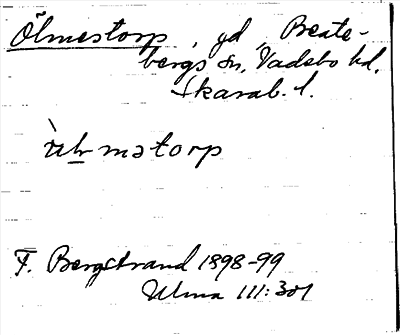 Ölmestorp, gd, Beate-
bergs sn. Vadsbo hd.
Skarab. l.
mətorp
F. Bergstrand 1898-99
Ulma 111:301